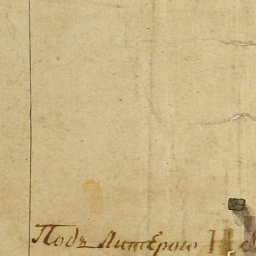 Подъ Литерою